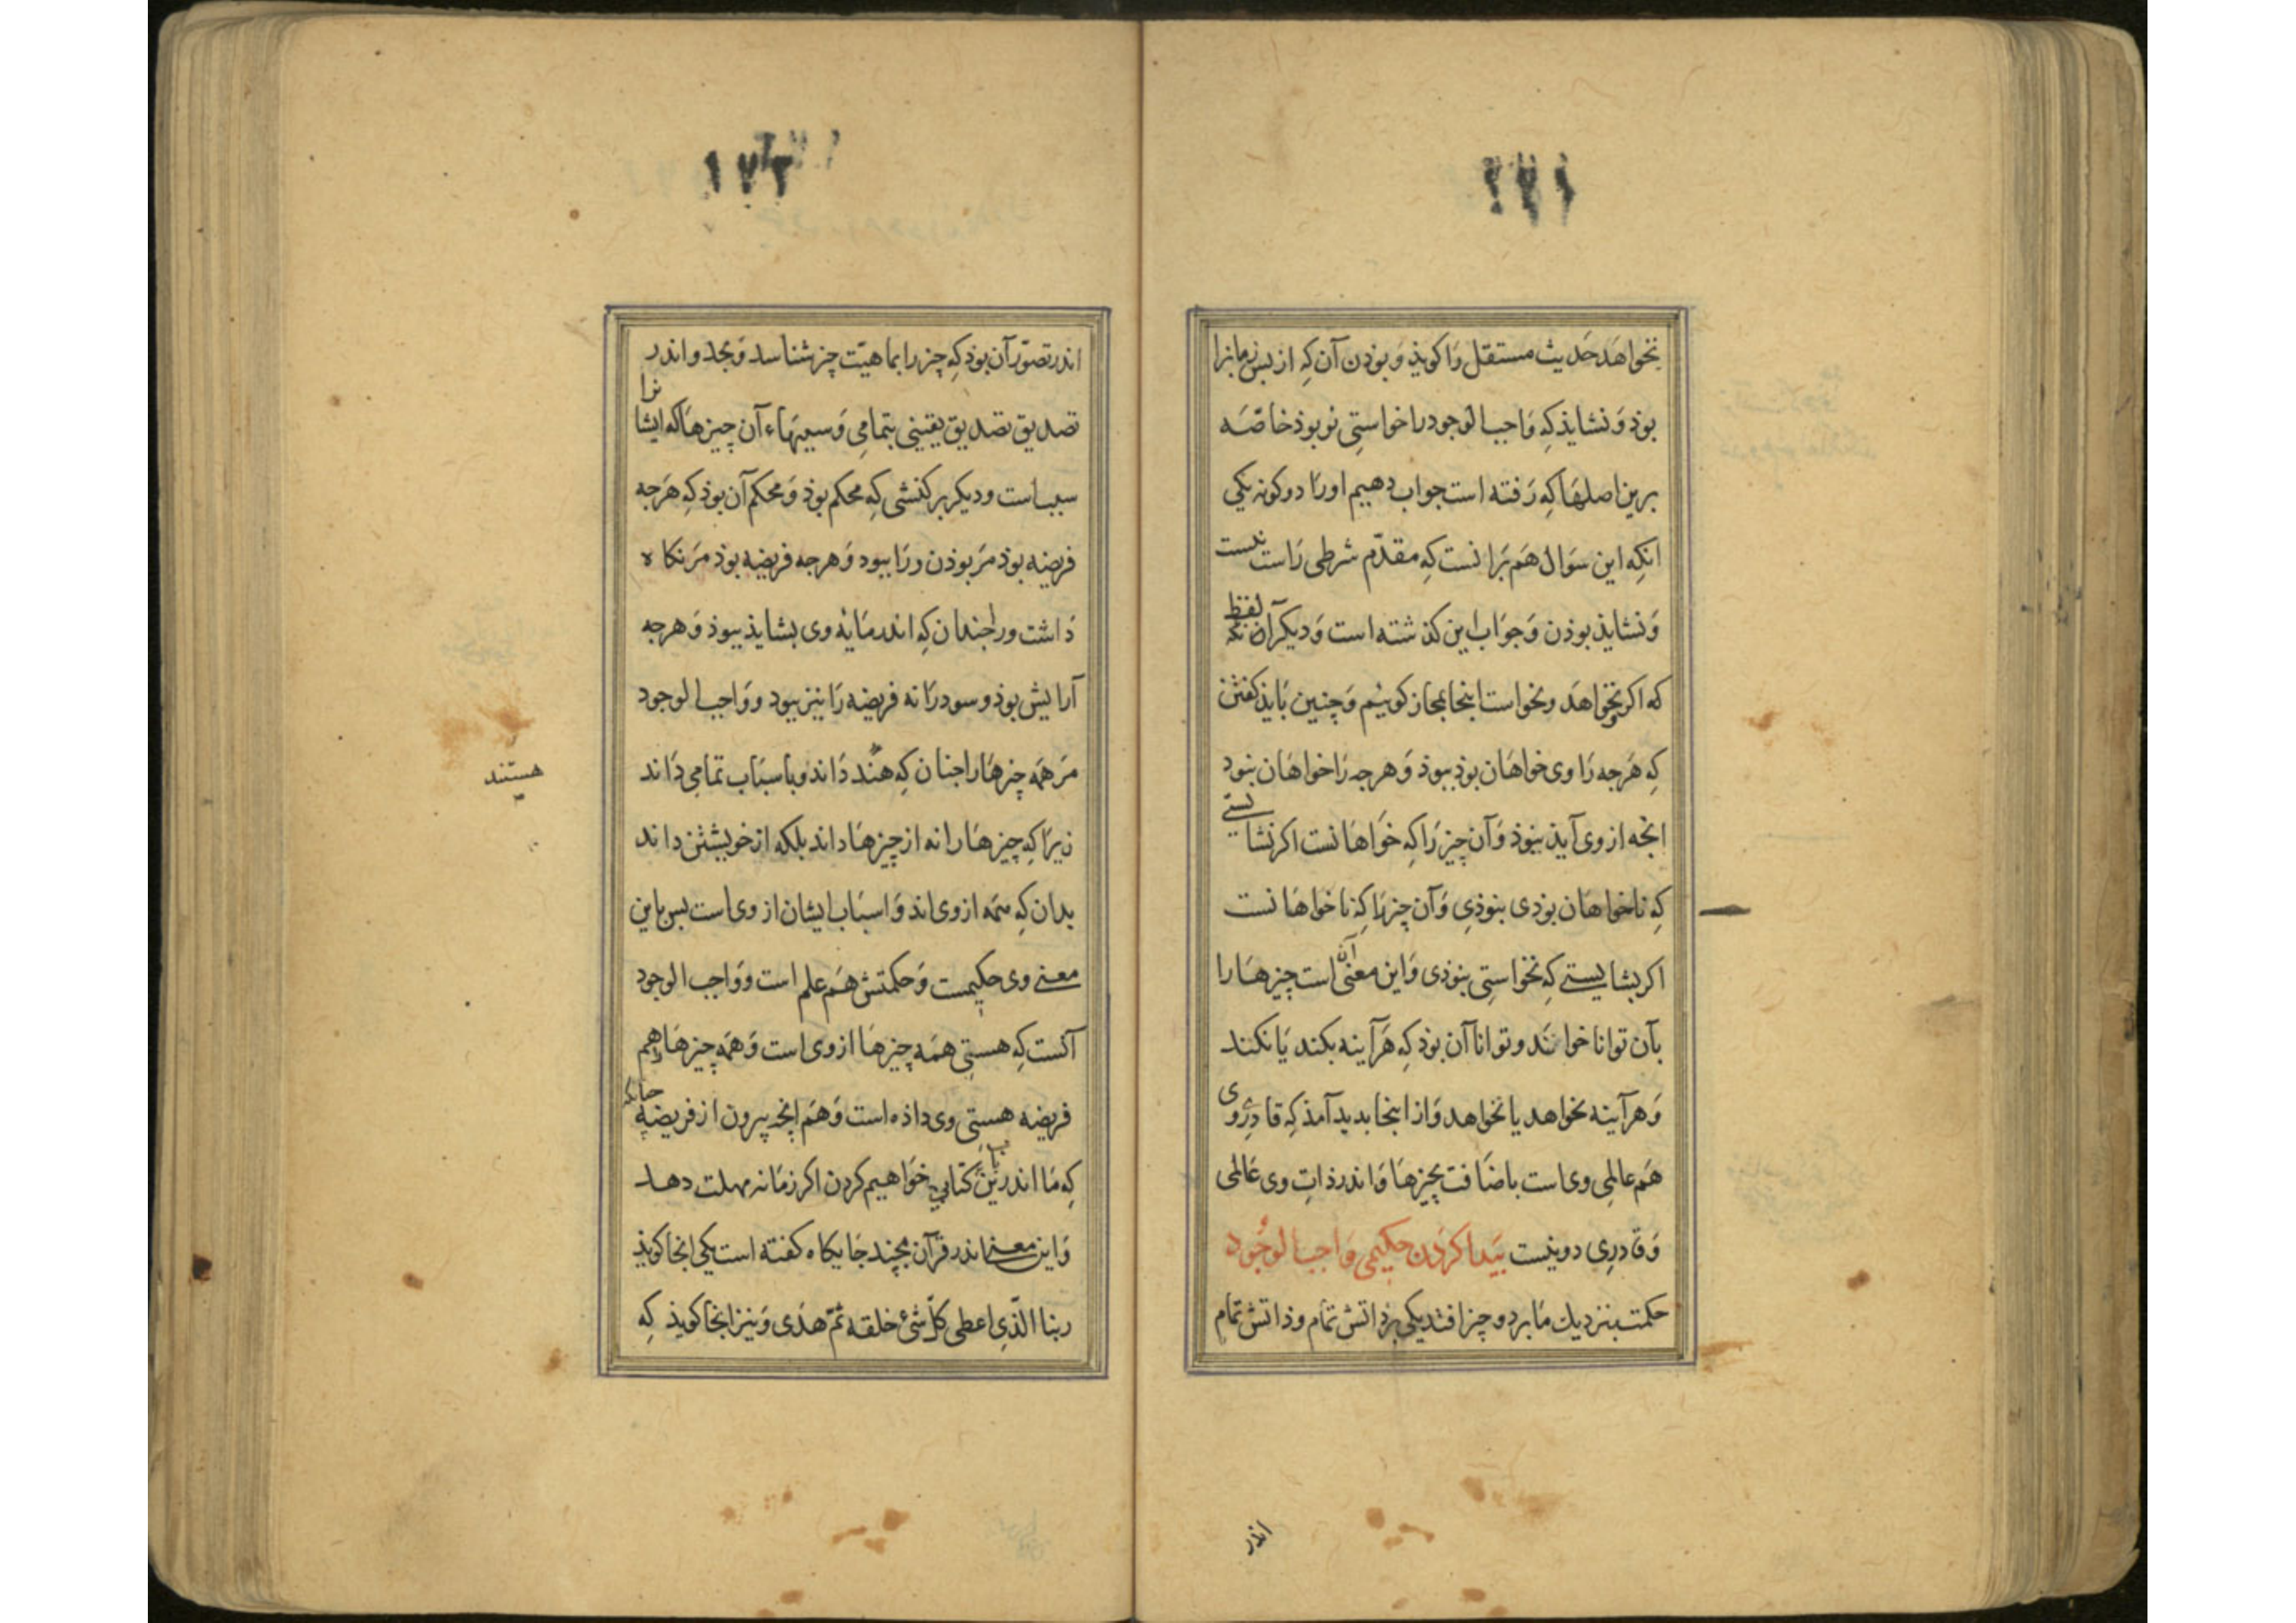 ۱۷۱
نخواهد حدیث مستقل را کویذ و بوذن آن که از بس زمانرا
بوذ و نشایذ که واجب الوجود را خواستی نو بوذ خاصّه
برین اصلها که رفته است جواب دهیم اورا دو کونه یکی
انکه این سوال هم برانست که مقدّم شرطی راست نیست
و نشایذ بوذن و جواب این کذشته است و دیکر آن لفظ
که اکر بخواهد و نخواست اینجا بمجاز کوئیم و چنین بایذ کفتن
که هرجه را وی خواهان بوذ ببوذ و هرجه را خواهان نبود
انجه از وی آیذ نبوذ و آن چیز را که خواهانست اکر نشایستی
که ناخواهان بوذی نبوذی و آن چیز را که ناخواهانست
اکر بشایستی که نخواستی نبوذی و این معنی آنست چیزها را
بآن توانا خوانند و توانا آن بوذ که هر آینه بکند یا نکند
و هر آینه بخواهد یا نخواهد و از اینجا بدید آمذ که قادری وی
هم عالمی وی است باضافت بچیزها و اندر ذات وی عالمی
و قادری دو نیست بیدا کردن حکیمی واجب الوجود
حکمت بنزدیك ما بر دو چیز افتد یکی بر ذاتش تمام و ذاتش تمام
انذر
۱۷۲
اندر تصوّر آن بوذ که چیز را بماهیّت چیز شناسد و بحد و اندر
تصدیق تصدیق یقینی بتمامی و سببهاء آن چیزها که ایشانرا
سبب است و دیکر بر کنشی که محکم بوذ و محکم آن بوذ که هرجه
فریضه بوذ مر بوذن ورا ببود و هرجه فریضه بوذ مر نکاه
داشت ورا جندان که اندر مایه وی بشایذ ببوذ و هرجه
آرایش بوذ و سود را نه فریضه را نیز ببود و واجب الوجود
مر همه چیزها را جنان که هند داند و باسباب تمامی داند
هستند
زیرا که چیزها را نه از چیزها داند بلکه از خویشتن داند
بدان که همه از وی اند و اسباب ایشان از وی است بس باین
معنی وی حکیمست و حکمتش هم علم است و واجب الوجود
آنست که هستی همه چیزها از وی است و همه چیزها را هم
فریضه هستی وی داذه است و هم انج بیرون از فریضه جنانکه
که ما اندرین باب کتابی خواهیم کردن اکر زمانه مهلت دهد
و این معنی اندر قرآن بچند جایکاه کفته است یکی انجا کویذ
ربنا الّذی اعطی کلّ شئ خلقه ثمّ هدی و نیز انجا کویذ که